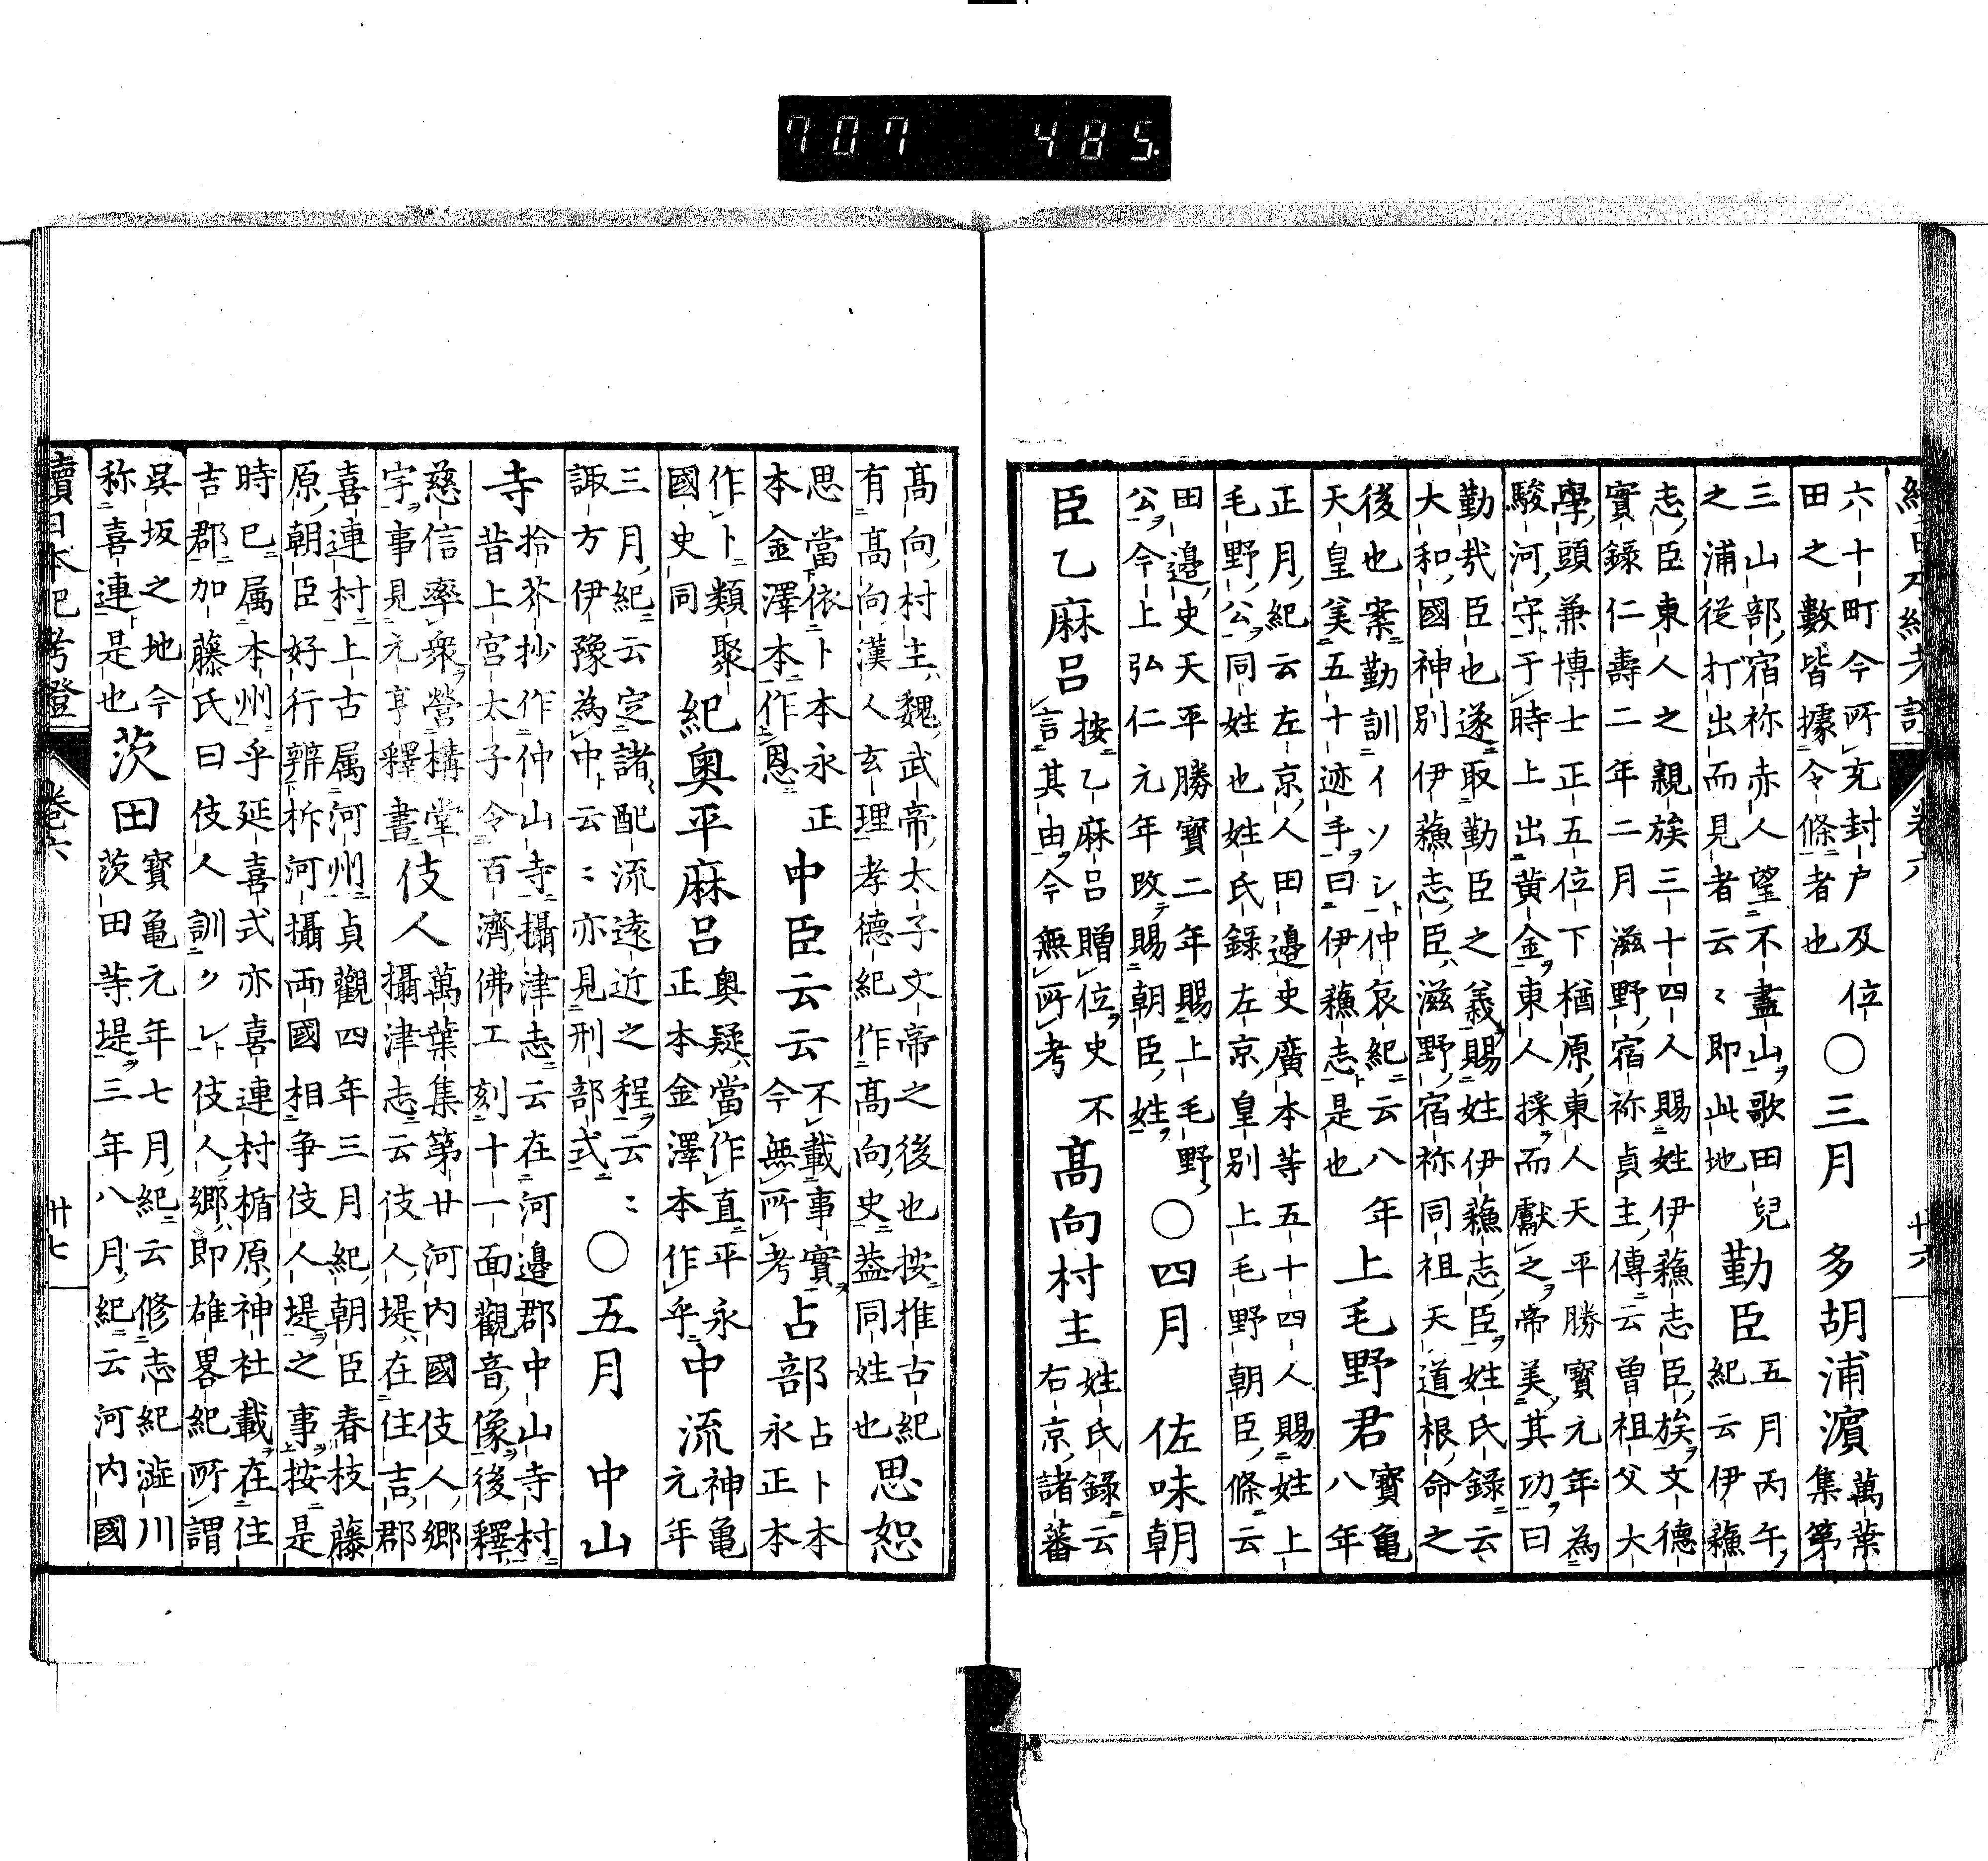 707 485
續日本紀考證 卷六 卅六
六十町今所充封戸及位
田之數皆據令條者也
○三月 多胡浦濱
萬葉
集第
三山部宿祢赤人望不盡山歌田兒
之浦從打出而見者云〻即此地
勤臣
五月丙午
紀云伊蘓
志臣東人之親族三十四人賜姓伊蘓志臣族文德
實錄仁壽二年二月滋野宿祢貞主傳云曽祖父大
學頭兼博士正五位下楢原東人天平勝寶元年為
駿河守于時上出黄金東人採而獻之帝美其功曰
勤哉臣也遂取勤臣之義賜姓伊蘓志臣姓氏錄云
大和國神別伊蘓志臣滋野宿祢同祖天道根命之
後也案勤訓イソシ仲哀紀云八年
天皇美五十迹手曰伊蘓志是也
上毛野君
寶亀
八年
正月紀云左京人田邉史廣本等五十四人賜姓上
毛野公同姓也姓氏錄左京皇別上毛野朝臣條云
田邉史天平勝寶二年賜上毛野
公今上弘仁元年改賜朝臣姓
○四月 佐味朝
臣乙麻呂
按乙麻呂贈位史不
言其由今無所考
髙向村主
姓氏錄云
右京諸蕃
髙向村主魏武帝太子文帝之後也按推古紀
有髙向漢人玄理孝德紀作髙向史葢同姓也
思恕
思當依卜本永正
本金澤本作恩
中臣云云
不載事實
今無所考
占部
占卜本
永正本
作卜類聚
國史同
紀奥平麻呂
奥疑當作直平永
正本金澤本作乎
中流
神亀
元年
三月紀云定諸配流遠近之程云〻
諏方伊豫為中云〻亦見刑部式
○五月 中山
寺
拾芥抄作仲山寺攝津志云在河邉郡中山寺村
昔上宮太子令百濟佛工刻十一面觀音像後釋
慈信率衆營構堂
宇事見元亨釋書
伎人
萬葉集第廿河内國伎人郷
攝津志云伎人堤在住吉郡
喜連村上古属河州貞觀四年三月紀朝臣春枝藤
原朝臣好行辨柝河攝両國相争伎人堤之事按是
時已属本州乎延喜式亦喜連村楯原神社載在住
吉郡加藤氏曰伎人訓クレ伎人郷即雄畧紀所謂
呉坂之地今
称喜連是也
茨田
寳亀元年七月紀云修志紀澁川
茨田等堤三年八月紀云河内國
續日本紀考證 卷六 卅七